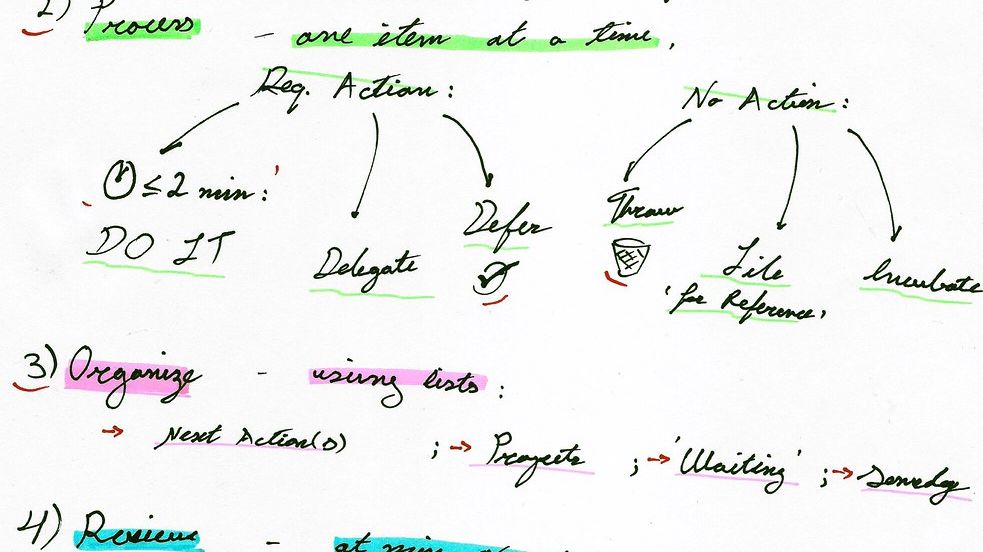 2) Process - one item at a time,
Req. Action: No Action:
≤2 min:
DO IT
Delegate
Defer
Throw
File
'for Reference,
Incubate
3) Organize - using lists:
→ Next Action(s) ; → Projects ; → 'Waiting' ; → Someday
4) Review - at min